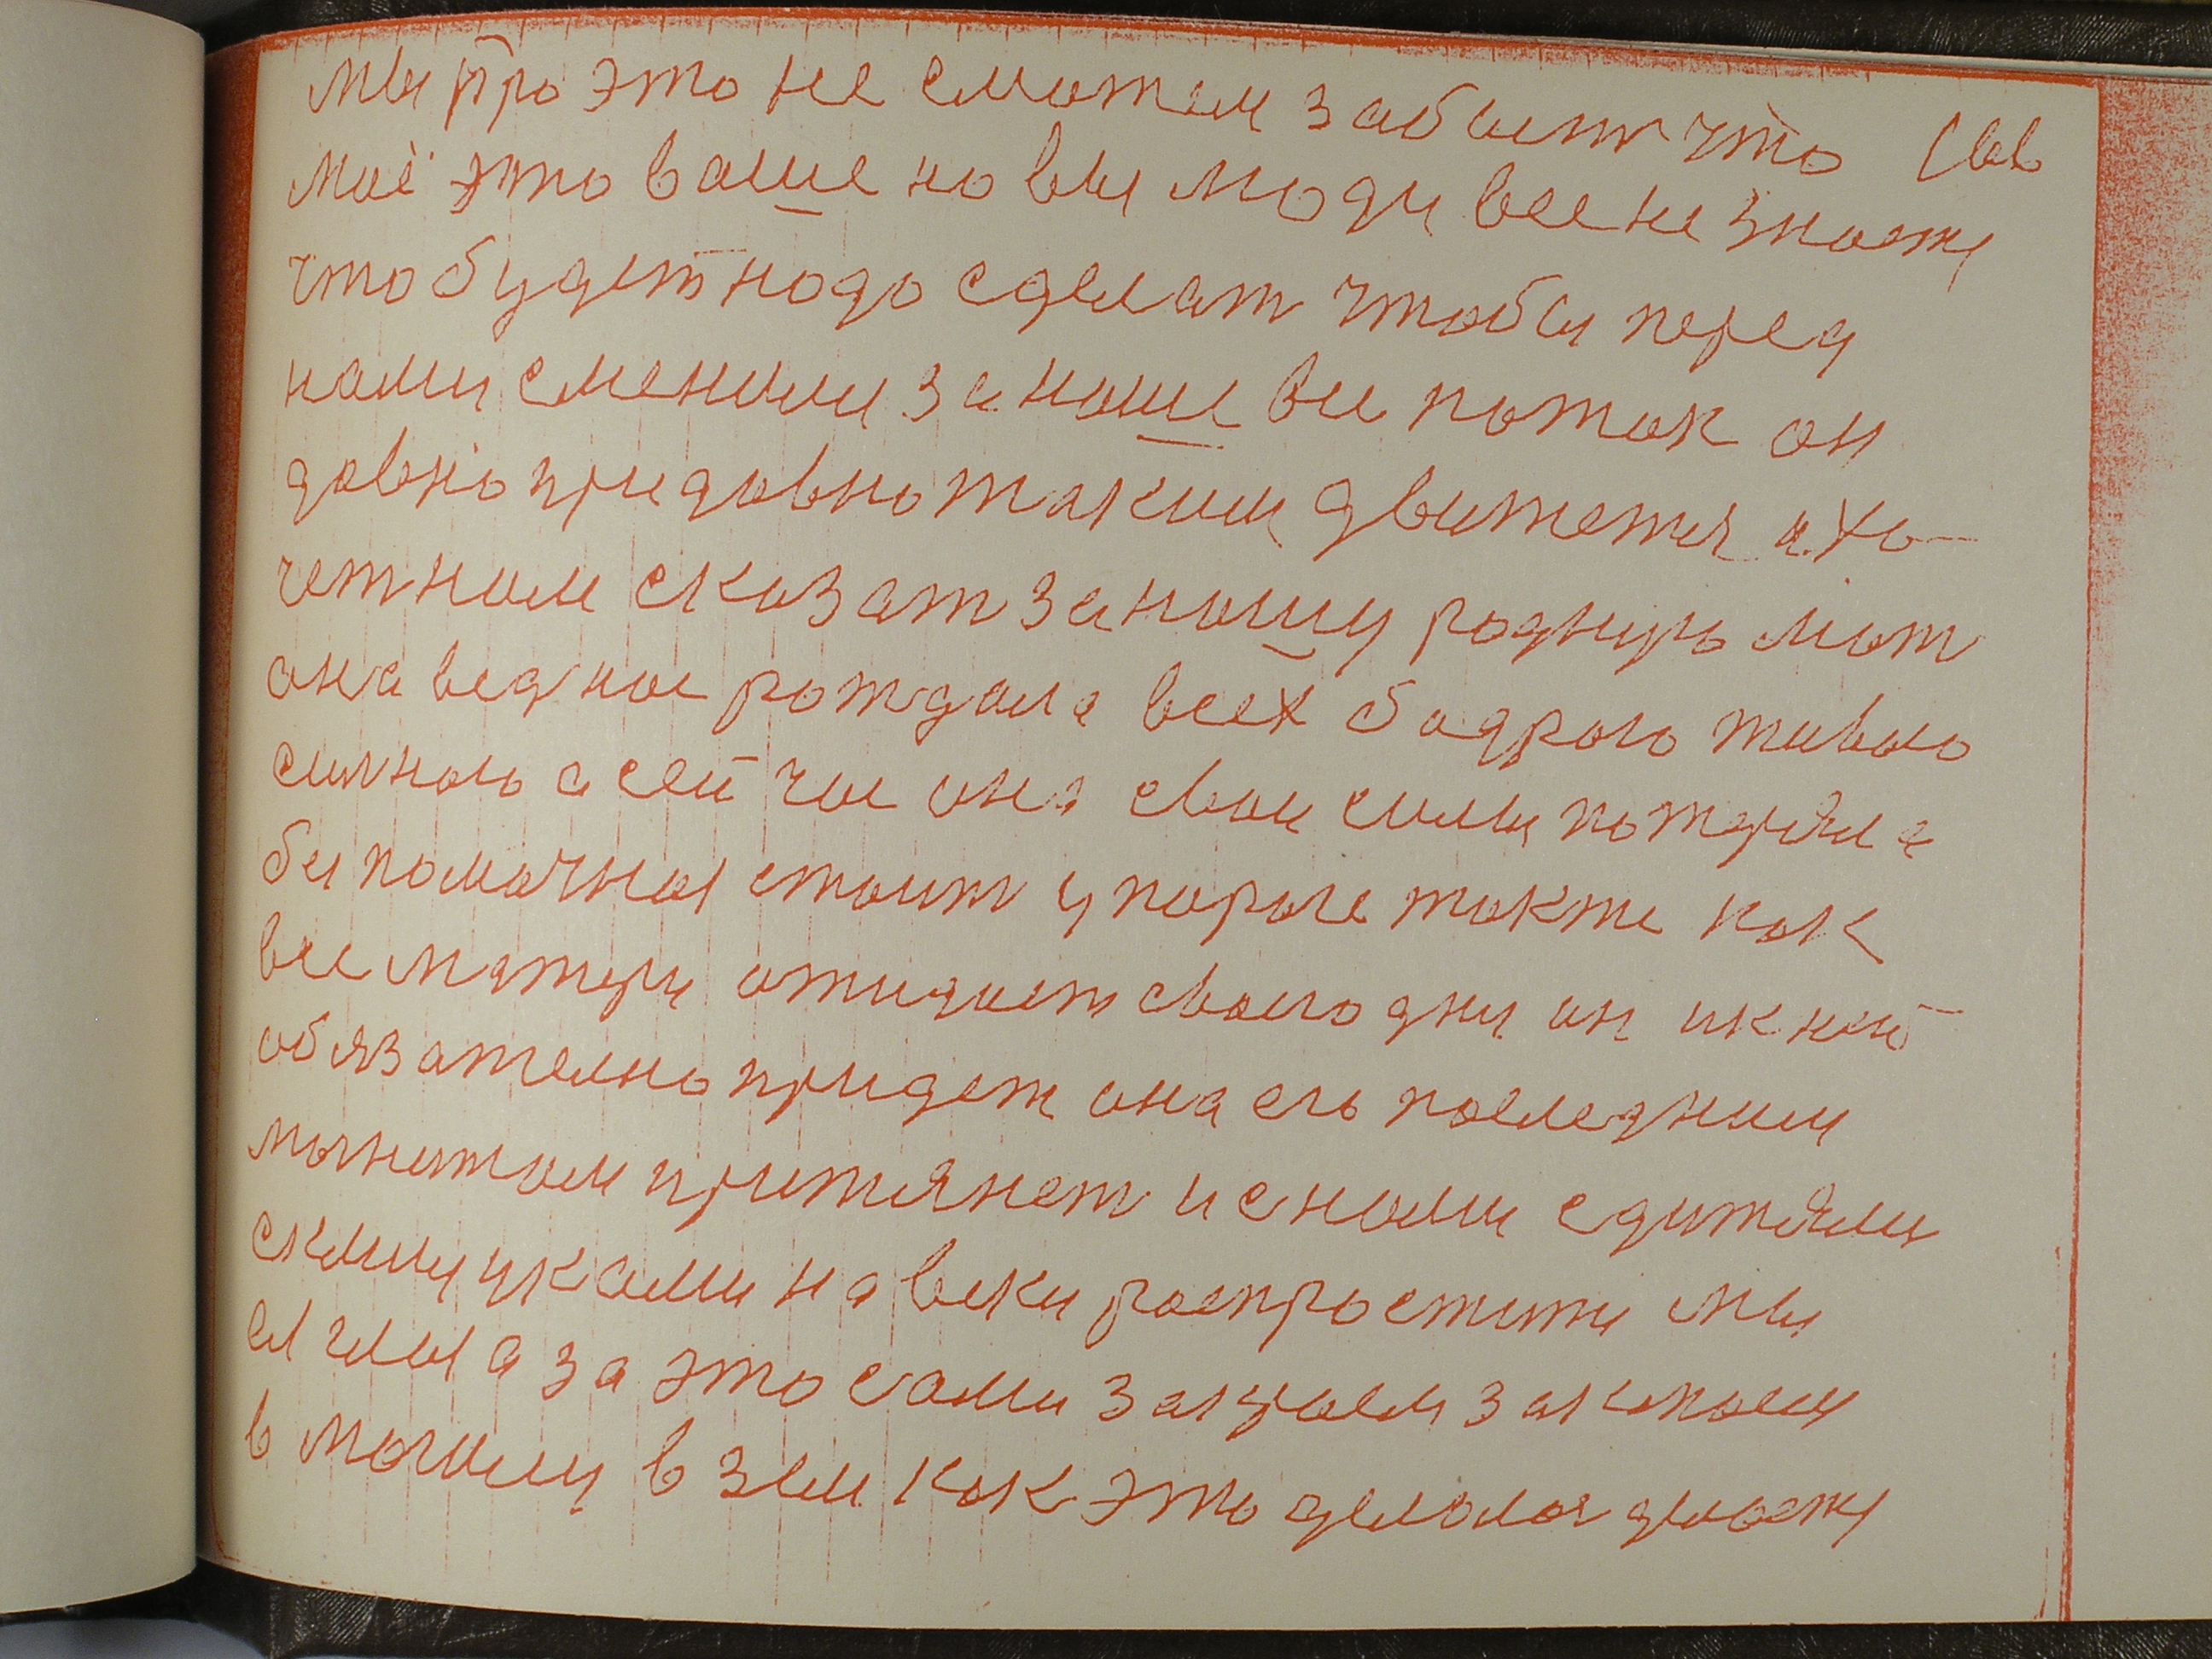 мы про это не сможем забыт что
моё это ваше но вы люди все не знаете
что будет надо сделат чтобы перед
нами сменили за наше все поток он
давно при давно таким движется и хо-
чет нам сказат за нашу родную мат
она вед нас рождала всех бодрого живого
силного а сейчас она свои силы потеряла
беспомочная стоит у порога также как
все матери ожидает своего дня он и к ней
обязателно придет она его последним
магнитом притянет и с нами с дитями
с клыуками на веки распростити мы
ея чила а за это сами закуем закопаем
в могилу в зем как это делалос делаете